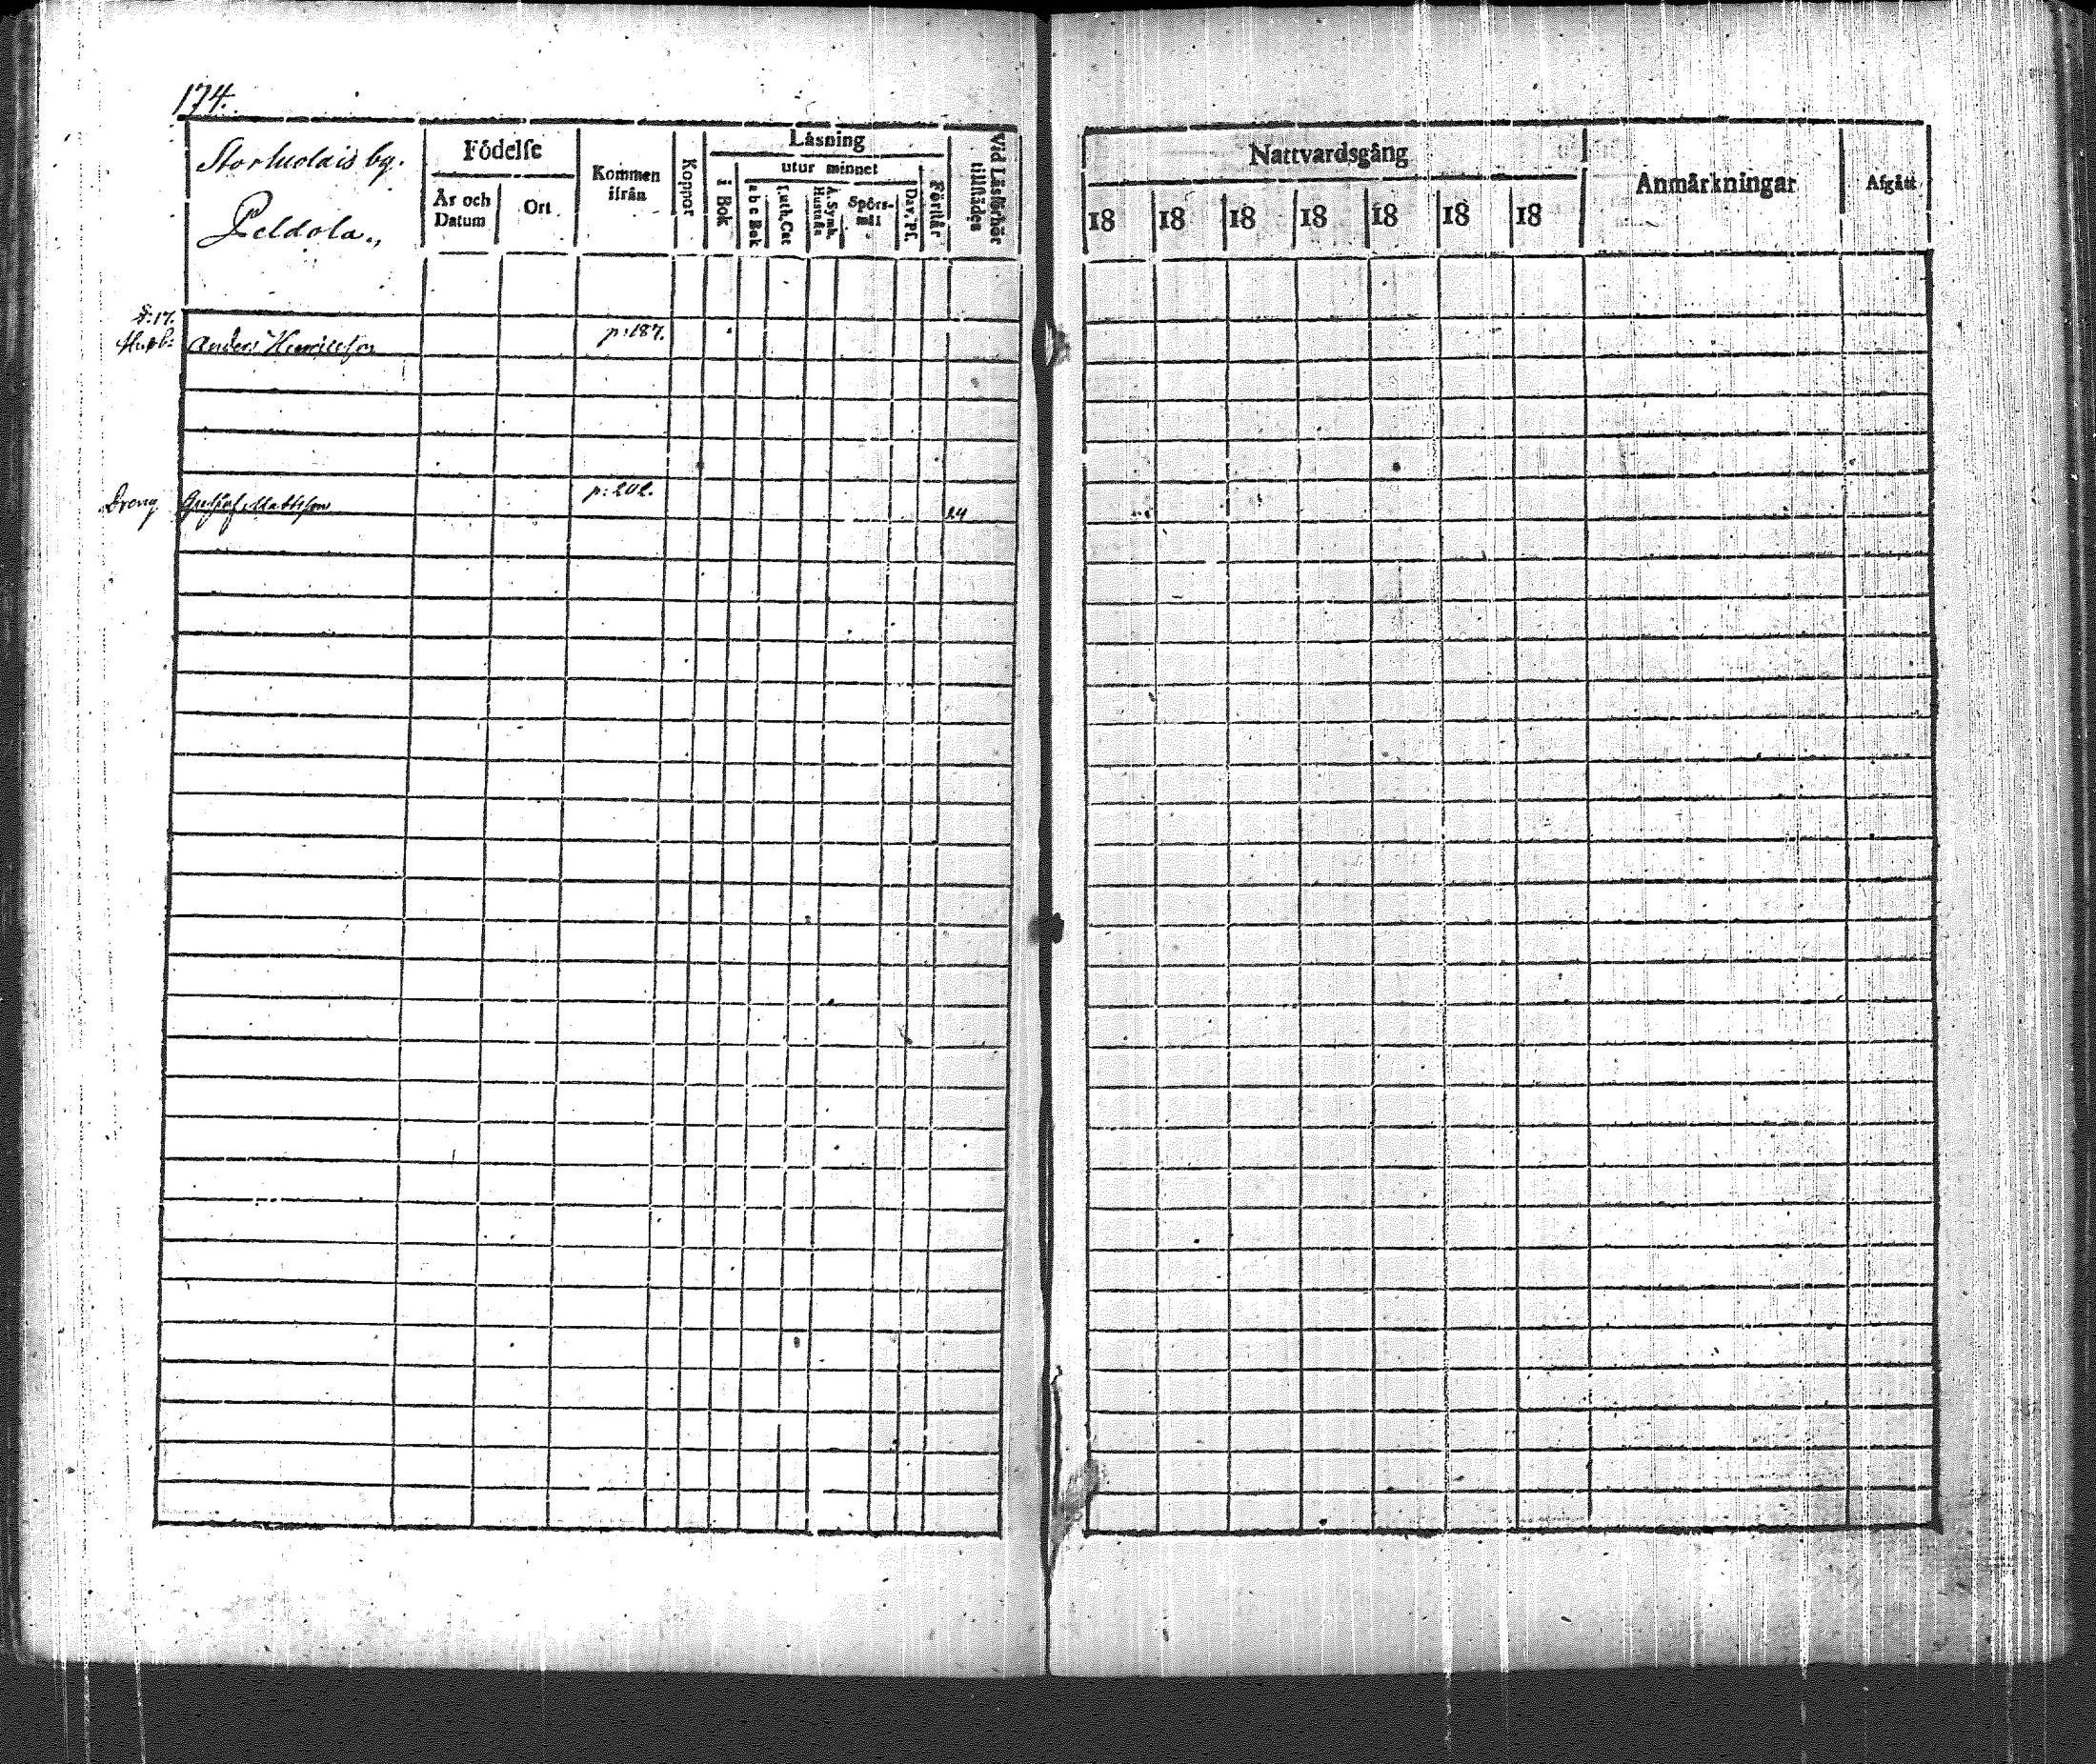 174.
Storhuolais by.
Peldola.
Födelse
År och Datum
Ort
Kommen ifrån
Koppor
Läsning
i Bok
utur minnet
a b c Bok
Luth. Cat
A. Symb. Hustafla
Spörsmål
Dav. Ps.
Förstår
Vid Läsförhör tillstädes
Nattvardsgång
18 18 18 18 18 18 18
Anmärkningar
Afgått
§:17.
Anders Henriksson p:187.
Dreng Gustaf Mattsson p:202. 24